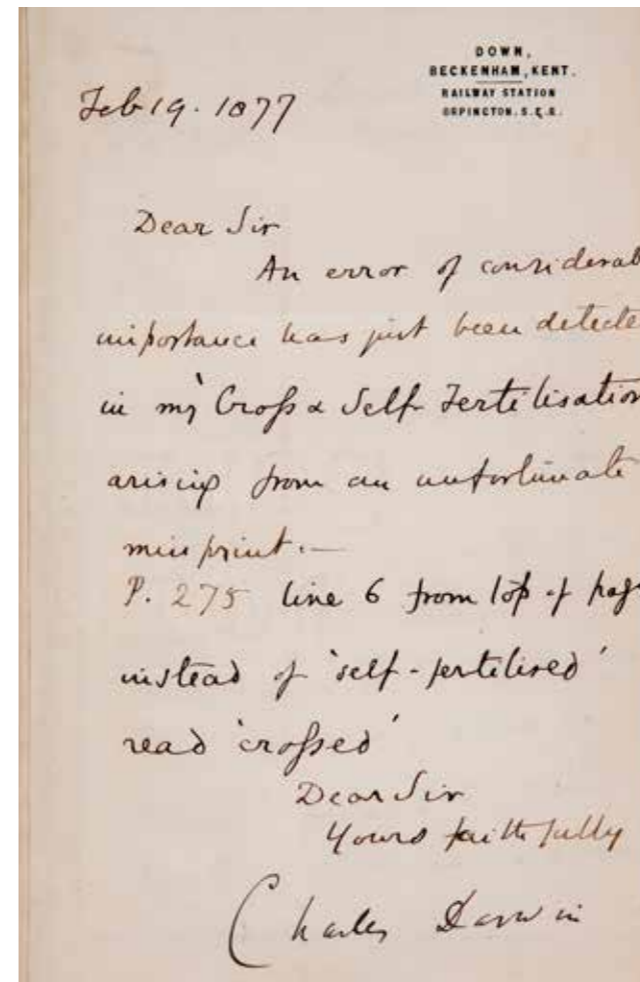 DOWN,
BECKENHAM, KENT.
RAILWAY STATION
ORPINGTON. S.E.R.
Feb 19. 1877
Dear Sir
An error of considerab
importance has just been detecte
in my Croſs & Self Fertilisation
arising from an unfortunate
misprint.—
P. 275 line 6 from top of pag
instead of 'self-fertilised'
read 'croſsed'
Dear Sir
Yours faithfully
Charles Darwin